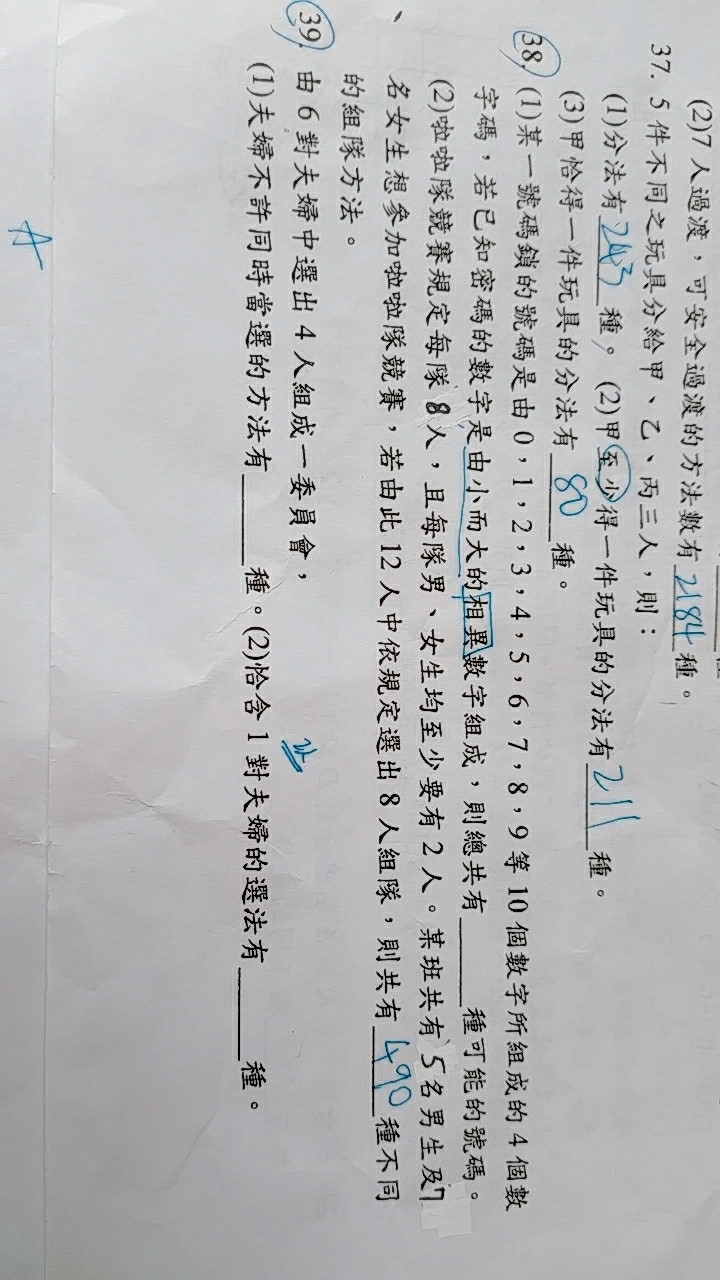 (2)7人過渡，可安全過渡的方法數有2184種。
37. 5件不同之玩具分給甲、乙、丙三人，則：
(1)分法有243種。(2)甲至少得一件玩具的分法有211種。
(3)甲恰得一件玩具的分法有80種。
38. (1)某一號碼鎖的號碼是由0，1，2，3，4，5，6，7，8，9等10個數字所組成的4個數
字碼，若已知密碼的數字是由小而大的相異數字組成，則總共有______種可能的號碼。
(2)啦啦隊競賽規定每隊8人，且每隊男、女生均至少要有2人。某班共有5名男生及7
名女生想參加啦啦隊競賽，若由此12人中依規定選出8人組隊，則共有490種不同
的組隊方法。
39. 由6對夫婦中選出4人組成一委員會，
(1)夫婦不許同時當選的方法有______種。(2)恰含1對夫婦的選法有______種。